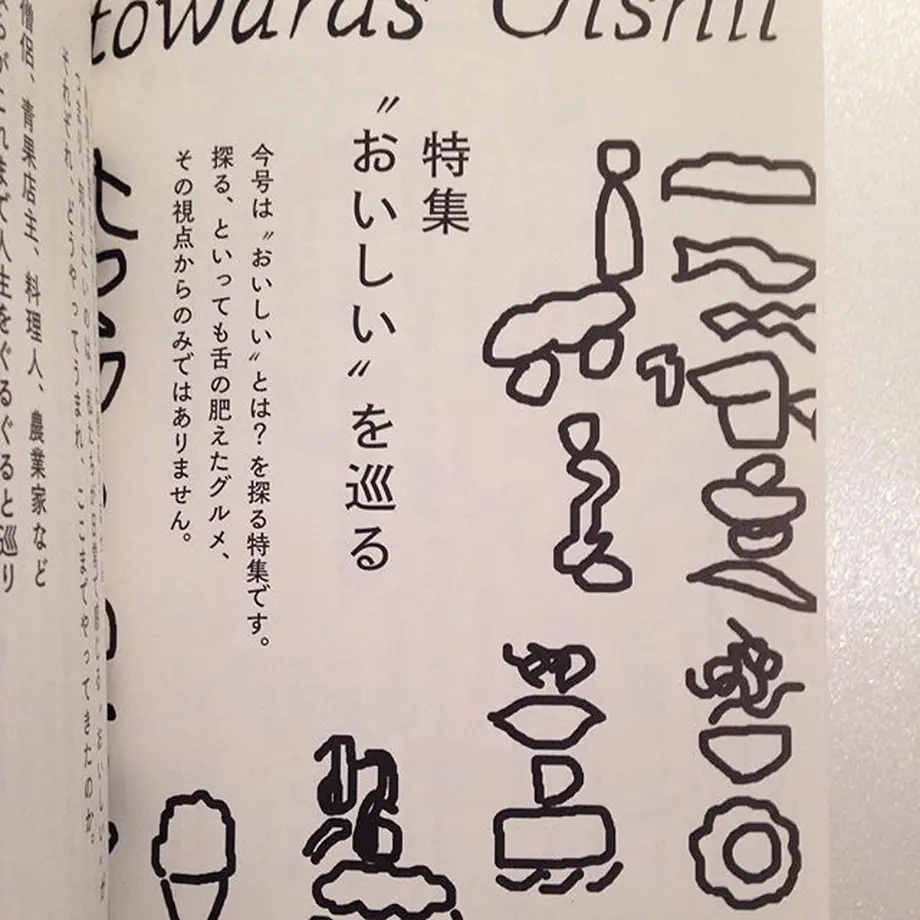 towards Oishii
特集
〝おいしい〟を巡る
今号は〝おいしい〟とは?を探る特集です。
探る、といっても舌の肥えたグルメ、
その視点からのみではありません。
それぞれ、どうやってうまれ、ここまでやってきたのか。
僧侶、青果店主、料理人、農業家など
がこれまで人生をぐるぐると巡り